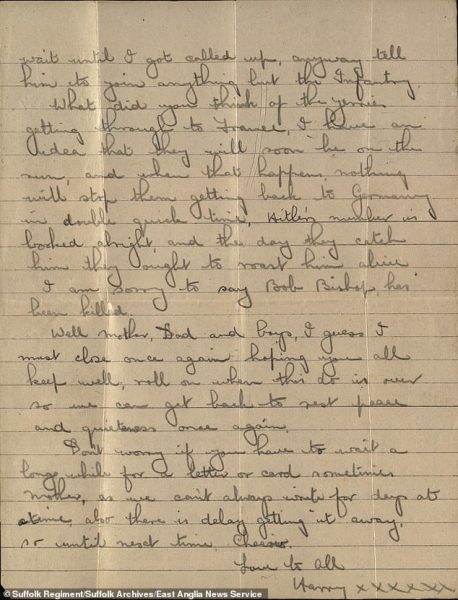 wait until I got called up, anyway tell
him to join anything but the Infantry.
What did you think of the Jerries
getting through to France, I have an
idea that they will soon be on the
run, and when that happens nothing
will stop them getting back to Germany
in double quick time, Hitler's number is
booked alright, and the day they catch
him they ought to roast him alive
I am sorry to say Bob Bishop has
been killed.
Well mother, Dad and boys, I guess I
must close once again hoping you all
keep well, roll on when this do is over
so we can get back to rest peace
and quieteness once again.
Don't worry if you have to wait a
long while for a letter or card sometimes
mother, as we can't always write for days at
atime, also there is delay getting it away,
so until next time Cheerio.
Love to All
Harry xxxxxx
© Suffolk Regiment/Suffolk Archives/East Anglia News Service